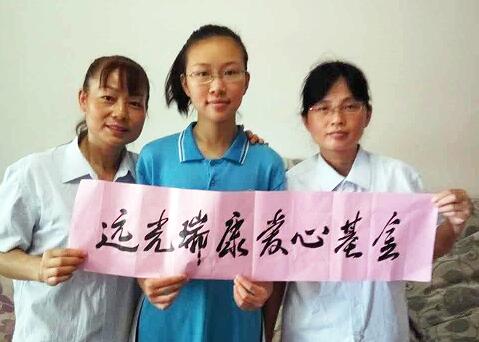 远光瑞康爱心基金